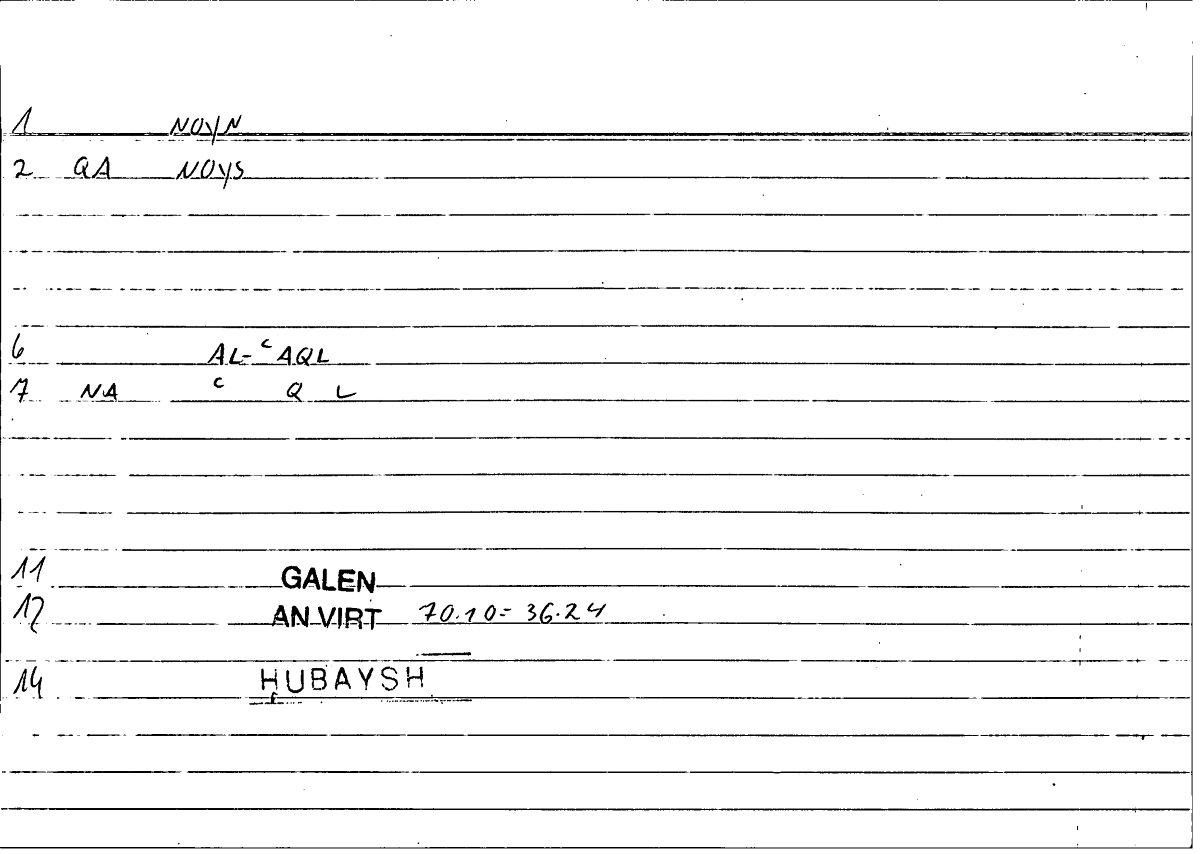 1 NOYN
2 QA NOYS
6 AL-ᶜAQL
7 NA ᶜ Q L
11 GALEN
12 AN VIRT 70.10= 36.24
14 HUBAYSH